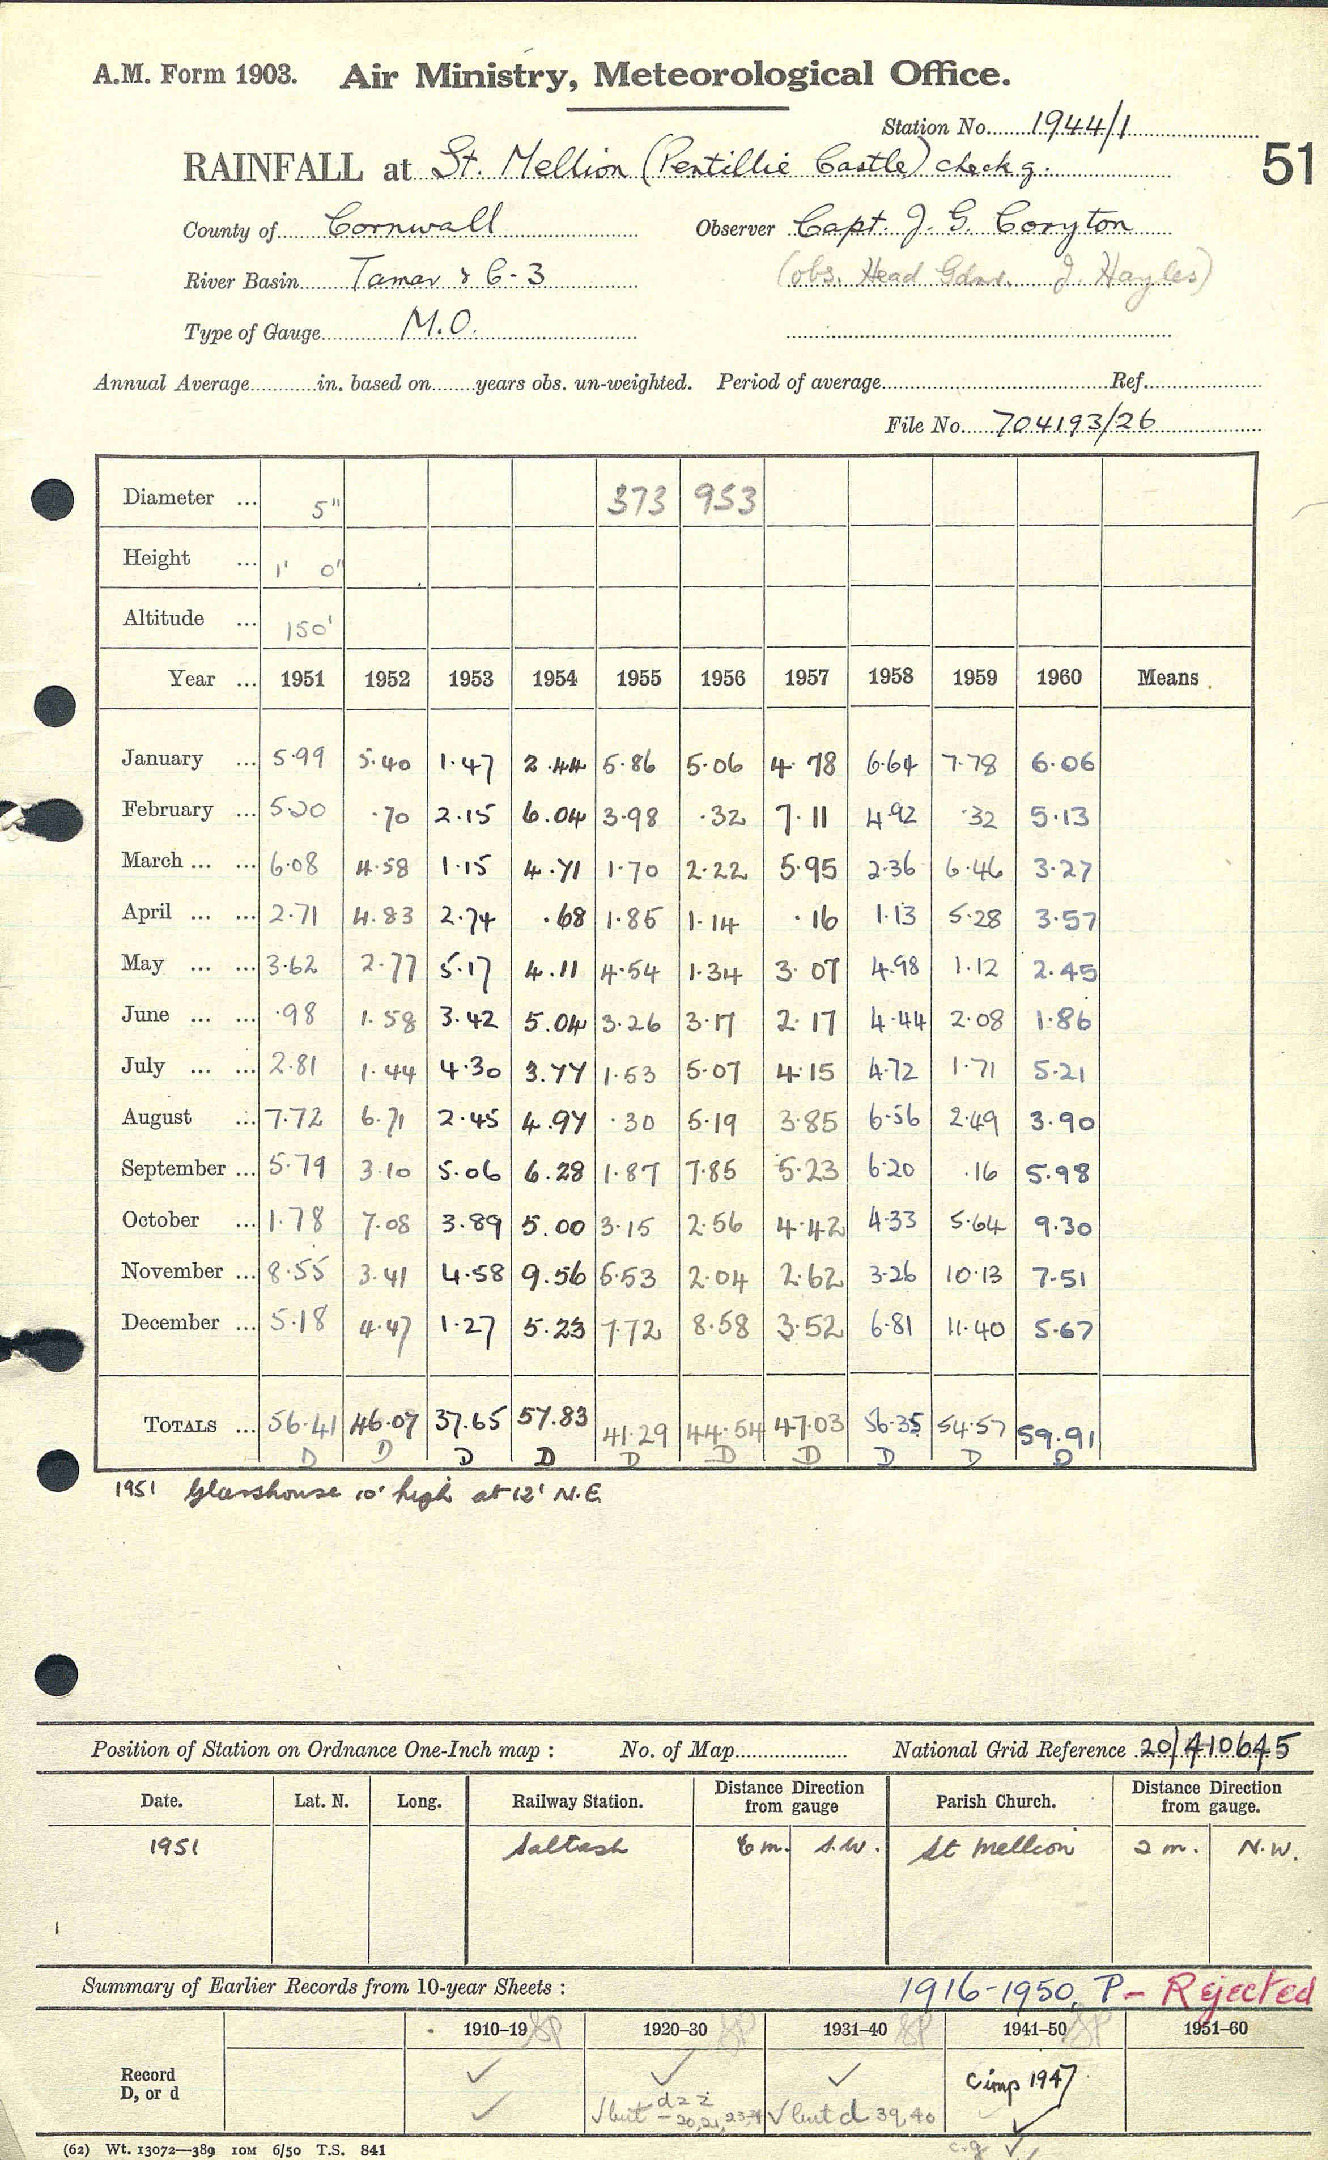 A.M. Form 1903. Air Ministry, Meteorological Office.
Station No. 1944/1
RAINFALL at St. Mellion (Pentillie Castle) check g. 51
County of Cornwall Observer Capt. J. G. Coryton
River Basin Tamar & C-3 (obs. Head Gdnr. J. Hayles)
Type of Gauge M.O.
Annual Average in. based on years obs. un-weighted. Period of average Ref.
File No. 704193/26
Diameter ... 5" 373 953
Height ... 1' 0"
Altitude ... 150'
Year ... 1951 1952 1953 1954 1955 1956 1957 1958 1959 1960 Means
January ... 5.99 5.40 1.47 2.44 5.86 5.06 4.78 6.64 7.78 6.06
February ... 5.20 .70 2.15 6.04 3.98 .32 7.11 4.92 .32 5.13
March ... ... 6.08 4.58 1.15 4.71 1.70 2.22 5.95 2.36 6.46 3.27
April ... ... 2.71 4.83 2.74 .68 1.85 1.14 .16 1.13 5.28 3.57
May ... ... 3.62 2.77 5.17 4.11 4.54 1.34 3.07 4.98 1.12 2.45
June ... ... .98 1.58 3.42 5.04 3.26 3.17 2.17 4.44 2.08 1.86
July ... ... 2.81 1.44 4.30 3.77 1.53 5.07 4.15 4.72 1.71 5.21
August ... 7.72 6.71 2.45 4.97 .30 5.19 3.85 6.56 2.49 3.90
September ... 5.79 3.10 5.06 6.28 1.87 7.85 5.23 6.20 .16 5.98
October ... 1.78 7.08 3.89 5.00 3.15 2.56 4.42 4.33 5.64 9.30
November ... 8.55 3.41 4.58 9.56 5.53 2.04 2.62 3.26 10.13 7.51
December ... 5.18 4.47 1.27 5.23 7.72 8.58 3.52 6.81 11.40 5.67
TOTALS ... 56.41 46.07 37.65 57.83 41.29 44.54 47.03 56.35 54.57 59.91
D D D D D D D D D D
1951 Glasshouse 10' high at 12' N.E.
Position of Station on Ordnance One-Inch map : No. of Map National Grid Reference 20/410645
Date. Lat. N. Long. Railway Station. Distance Direction from gauge Parish Church. Distance Direction from gauge.
1951 Saltash 6 m. S.W. St Mellion 2 m. N.W.
Summary of Earlier Records from 10-year Sheets : 1916-1950, P - Rejected
1910–19 1920–30 1931–40 1941–50 1951–60
Record D, or d ✓ ✓ ✓ 1947
✓ √ but d √ but d 39,40 ✓
c.g ✓
(62) Wt. 13072—389 10M 6/50 T.S. 841